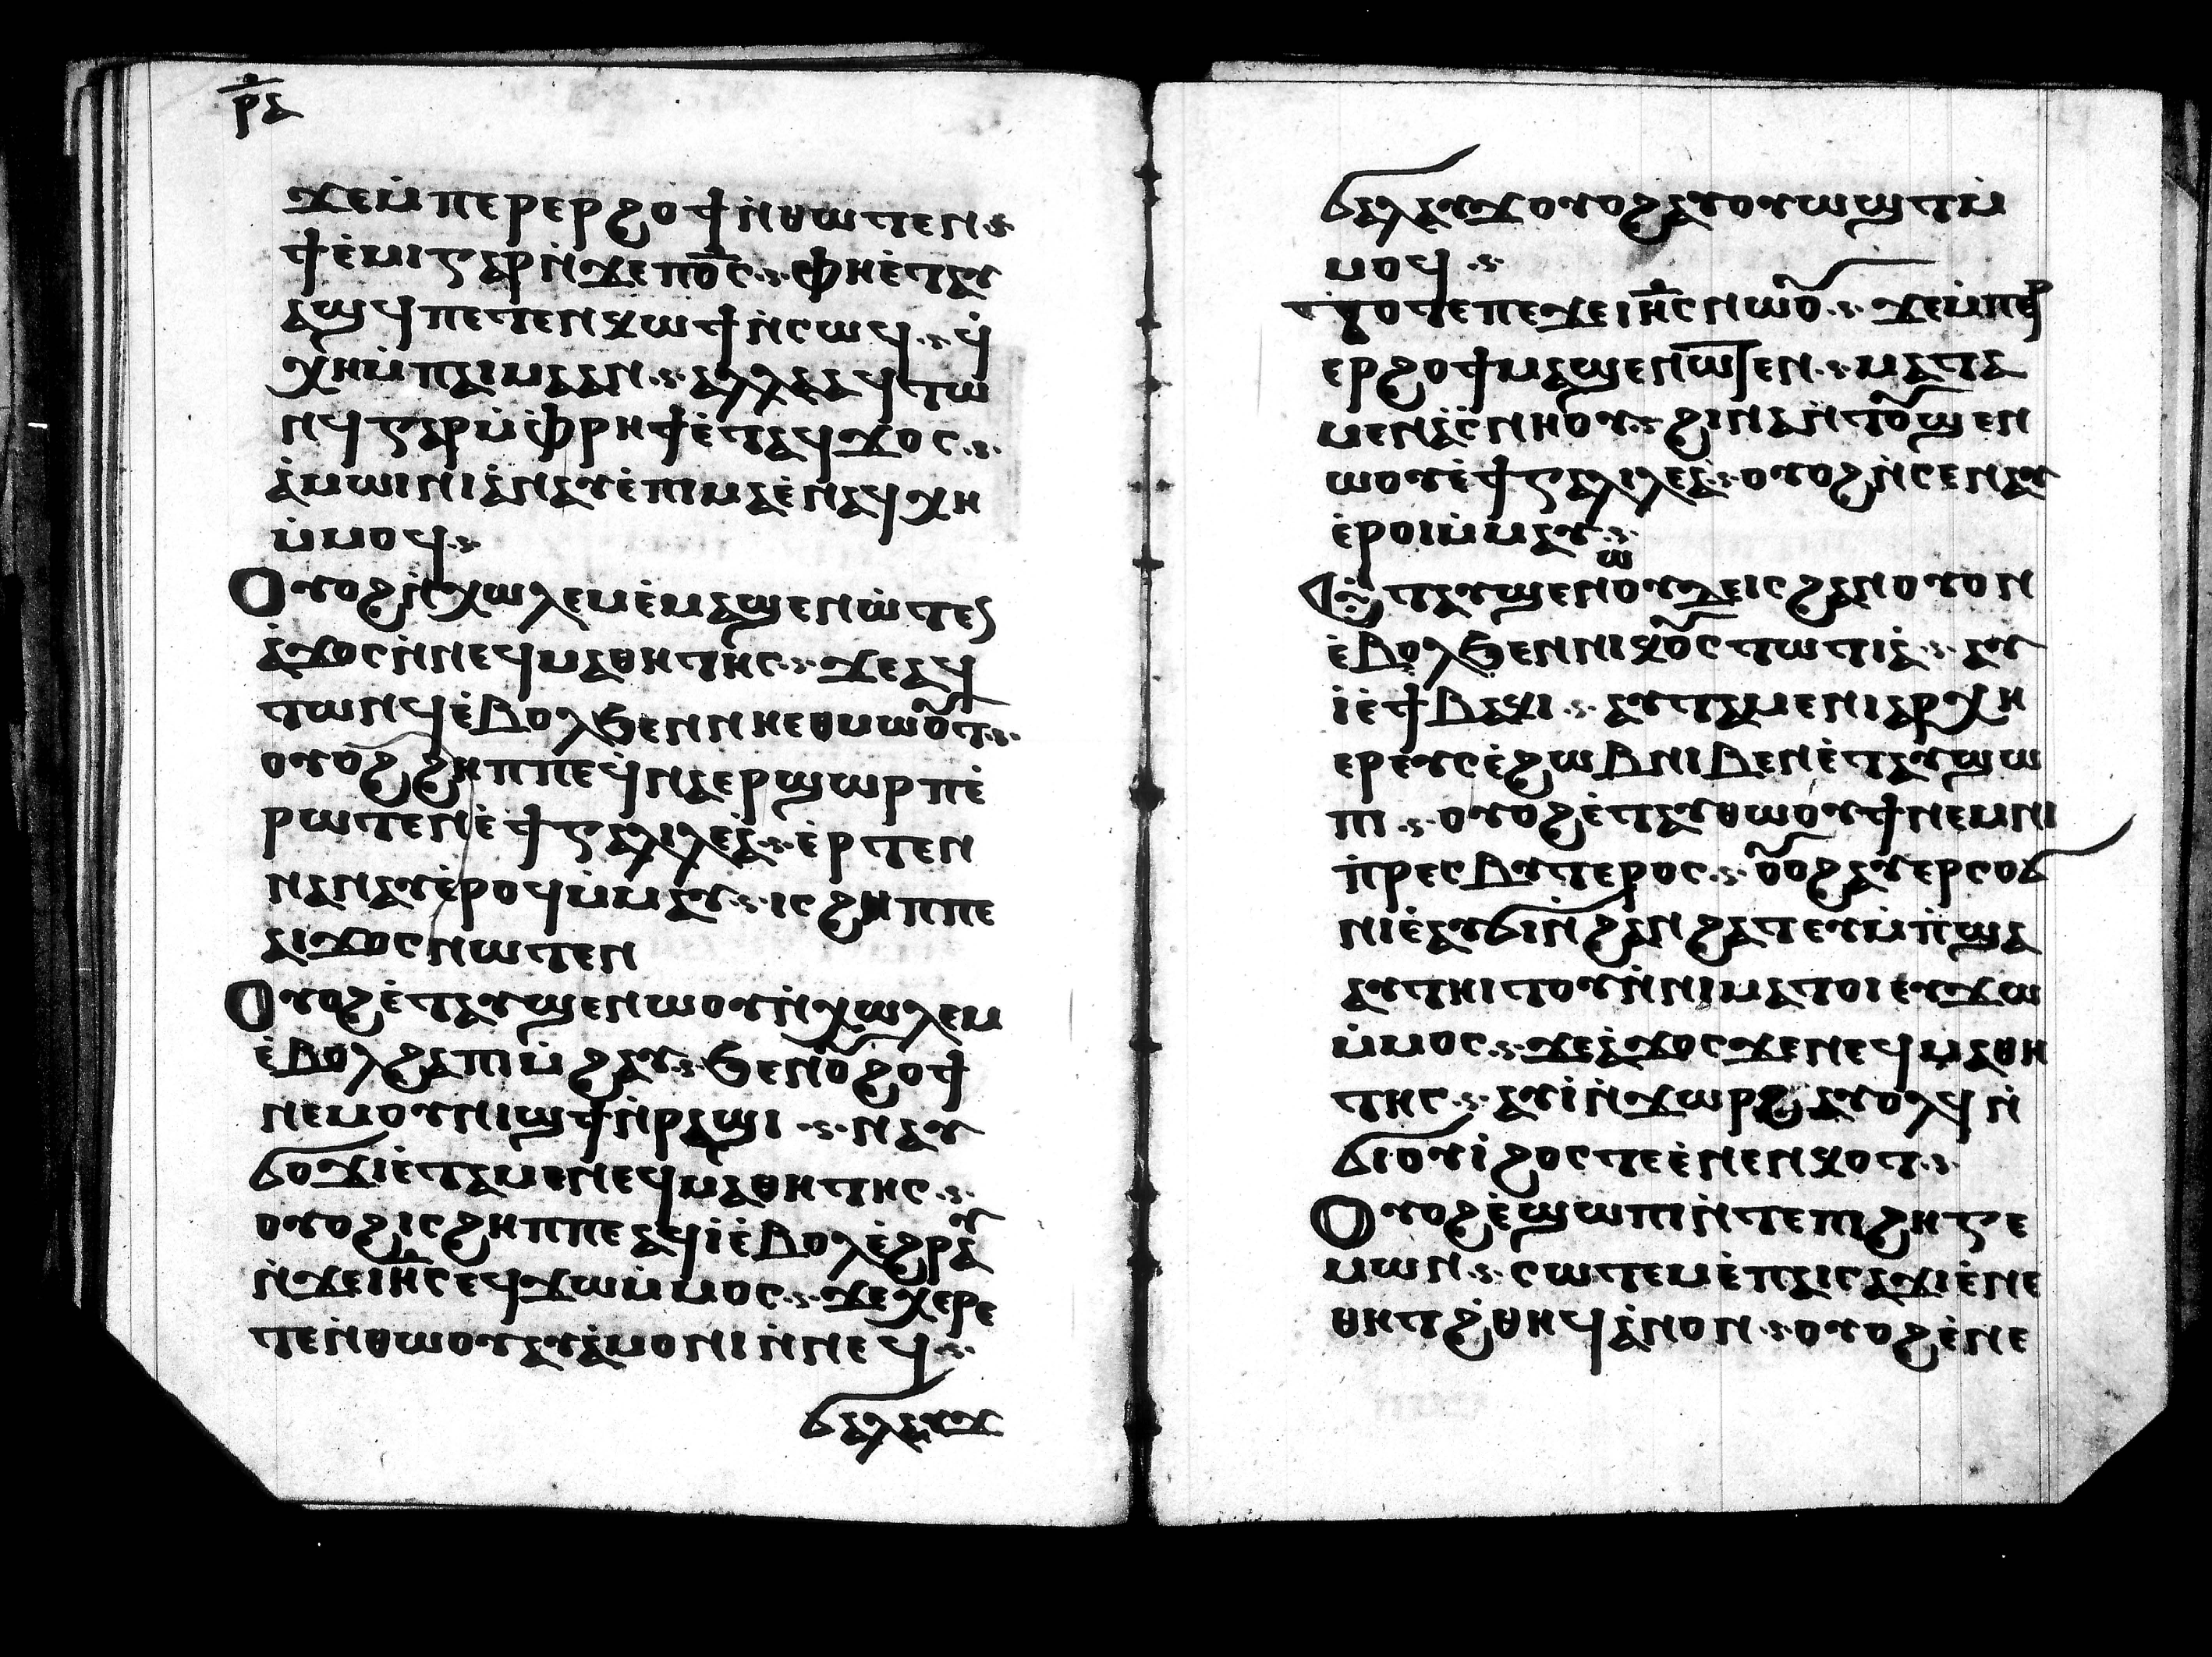 ⲣⲇ
ϫⲉⲙ̇ⲡⲉⲣⲉⲣϩⲟϯⲛ̇ⲑⲱⲧⲉⲛ
ϯⲉ̇ⲙⲓⲅⲁⲣⲛ̇ϫⲉⲡⲟ̅ⲥ̅ ⲫⲏⲉ̇ⲧⲁⲩ
ⲁϣϥⲡⲉⲧⲉⲛⲕⲱϯⲛ̇ⲥⲱϥ ϥ̇
ⲭⲏⲙ̇ⲡⲁⲓⲙⲁⲁⲛ ⲁⲗⲗⲁⲁϥⲧⲱ
ⲛϥⲅⲁⲣⲙ̇ⲫ̇ⲣⲏϯⲉ̇ⲧⲁϥϫⲟⲥ
ⲁ̇ⲙⲱⲓⲛⲓⲁ̇ⲛⲁⲩⲉ̇ⲡⲓⲙⲁⲉ̇ⲛⲁϥⲭⲏ
ⲙ̇ⲙⲟϥ
Ⲟⲩⲟϩⲛ̇ⲭⲱⲗⲉⲙⲉ̇ⲙⲁϣⲉⲛⲱ̇ⲧⲉⲛ
ⲁ̇ϫⲟⲥⲛ̇ⲛⲉϥⲙⲁⲑⲏⲧⲏⲥ ϫⲉⲁϥ
ⲧⲱⲛϥⲉ̇ⲃⲟⲗϧⲉⲛⲛⲏⲉⲑⲙⲱⲟ̅ⲧ
ⲟⲩⲟϩϩⲏⲡⲡⲉϥ̇ⲛⲁⲉⲣϣⲱⲣⲡⲉ̇
ⲣⲱⲧⲉⲛⲉ̇ϯⲅⲁⲗⲓⲗⲉⲁ̇ ⲉ̇ⲣⲧⲉⲛ
ⲛⲁⲛⲁⲩⲉ̇ⲣⲟϥⲙ̇ⲙⲁⲩ ⲓⲥϩⲏⲡⲡⲉ
ⲁⲓϫⲟⲥⲛⲱⲧⲉⲛ
Ⲟⲩⲟϩⲉ̇ⲧⲁⲩϣⲉⲛⲱⲟⲩⲛ̇ⲭⲱⲗⲉⲙ
ⲉ̇ⲃⲟⲗϩⲁⲡⲓⲙ̇ϩⲁⲩ ϧⲉⲛⲟ̅ϩⲟϯ
ⲛⲉⲙⲟⲩⲛⲓϣϯⲛ̇ⲣⲁϣⲓ ⲛⲁⲩ
ϭⲟϫⲓⲉ̇ⲧⲁⲙⲉⲛⲉϥⲙⲁⲑⲏⲧⲏⲥ
ⲟⲩⲟϩⲓⲥϩⲏⲡⲡⲉⲁϥⲓ̇ⲉ̇ⲃⲟⲗⲉ̇ϩⲣⲁⲩ
ⲛ̇ϫⲉⲓⲏ̅ⲥⲉϥϫⲱⲙ̇ⲙⲟⲥ ϫⲉⲭⲉⲣⲉ
ⲧⲉⲛ̇ⲑⲱⲟⲩⲁⲩⲁ̇ⲙⲟⲛⲓⲛ̇ⲛⲉϥ
ϭⲁⲗⲁⲩϫ
ϭⲁⲗⲁⲩϫⲟⲩⲟϩⲁⲩⲟⲩⲱϣⲧⲙ̇
ⲙⲟϥ
ⲧⲟⲧⲉⲡⲉϫⲉⲓⲏ̅ⲥⲛⲱⲟ̅ ϫⲉⲙ̇ⲡⲉⲣ
ⲉⲣϩⲟϯⲙⲁϣⲉⲛⲱⲧⲉⲛ ⲙⲁⲧⲁ
ⲙⲉⲛⲁ̇ⲥ̇ⲛⲏⲟⲩ ϩⲓⲛⲁⲛ̇ⲧⲟ̅ϣⲉⲛ
ⲱⲟⲩⲉ̇ϯⲅⲁⲗⲓⲗⲉⲁ̇ ⲟⲩⲟϩⲛ̇ⲥⲉⲛⲁⲩ
ⲉ̇ⲣⲟⲓⲙ̇ⲙⲁⲩ
Ⲉ̇ⲧⲁⲩϣⲉⲛⲱⲟⲩⲇⲉⲓⲥϩⲁⲛⲟⲩⲟⲛ
ⲉ̇ⲃⲟⲗϧⲉⲛⲛⲓⲕⲟ̅ⲥⲧⲱⲧⲓⲁ̇ ⲁⲩ
ⲓ̇ⲉ̇ϯⲃⲁⲕⲓ ⲁⲩⲧⲁⲙⲉⲛⲓⲁⲣⲭⲏ
ⲉⲣⲉⲩⲥⲉ̇ϩⲱⲃⲛⲓⲃⲉⲛⲉ̇ⲧⲁⲩϣⲱ
ⲡⲓ ⲟⲩⲟϩⲉ̇ⲧⲁⲩⲑⲱⲟⲩϯⲛⲉⲙⲛⲓ
ⲡ̇ⲣⲉⲥⲃⲩⲧⲉⲣⲟⲥ ⲟ̅ⲟϩⲁⲩⲉⲣⲥⲟϭ
ⲛⲓⲉ̇ⲁⲩϭⲓⲛ̇ϩⲁⲛϩⲁⲧⲉⲩⲙ̇ⲡ̇ϣⲁ
ⲁⲩⲧⲏⲓⲧⲟⲩⲛ̇ⲛⲓⲙⲁⲧⲟⲓⲉⲩϫⲱ
ⲙ̇ⲙⲟⲥ ϫⲉⲁ̇ϫⲟⲥϫⲉⲛⲉϥⲙⲁⲑⲏ
ⲧⲏⲥ ⲁⲩⲓ̇ⲛ̇ϫⲱⲣϩⲁⲩⲟⲗϥⲛ̇
ϭⲓⲟⲩⲓ̇ϩⲟⲥⲧⲉⲉ̇ⲛⲉⲛⲕⲟⲧ
Ⲟⲩⲟϩⲉ̇ϣⲱⲡⲓⲛ̇ⲧⲉⲡⲓϩⲏⲅⲉ
ⲙⲱⲛ ⲥⲱⲧⲉⲙⲉ̇ⲡⲁⲓⲥⲁϫⲓⲉ̇ⲛⲉ
ⲑⲏⲧϩ̇ⲑⲏϥⲁ̇ⲛⲟⲛ ⲟⲩⲟϩⲉ̇ⲛⲉ